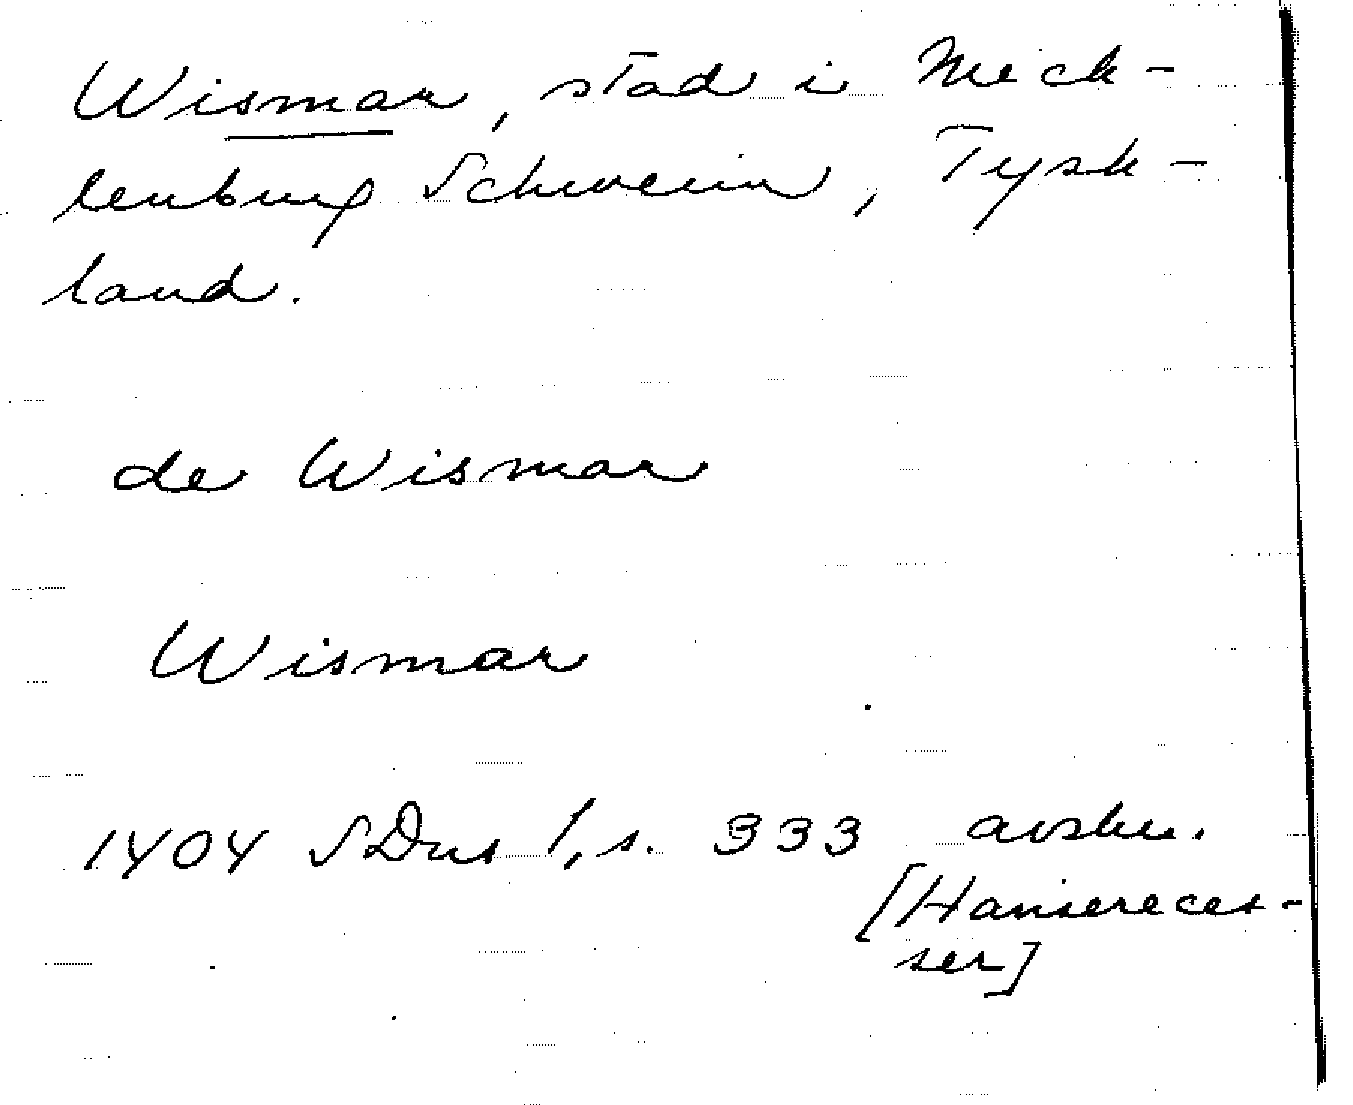 Wismar, stad i Meck-
lenburg Schwerin, Tysk-
land.
de Wismar
Wismar
1404 SDns 1, s. 333 avskr.
[Hansereces-
ser]